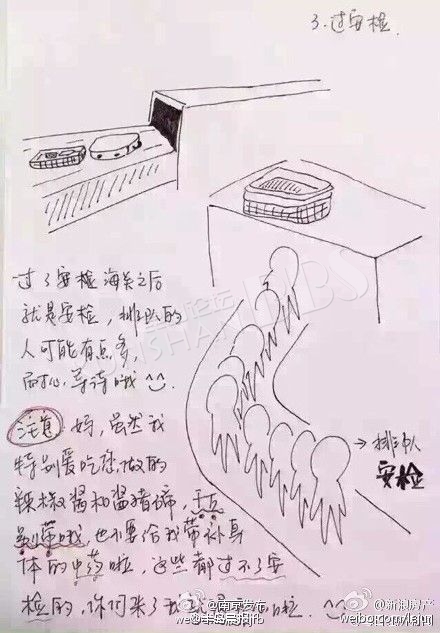 3.过安检.
过了安检海关之后
就是安检,排队的
人可能有点多,
耐心等待哦^^.
→排队人
安检
注意 妈,虽然我
特别爱吃您做的
辣椒酱和酱猪蹄,千万
别带哦,也不要给我带补身
体的中药啦,这些都过不了安
检的,你们来了我
啦.^^
@南京发布
@新浪房产
weibo.com/leju